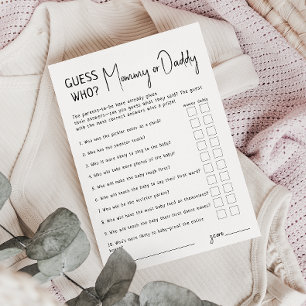 GUESS Mommy or Daddy
WHO?
The parents-to-be have already given
their answers—can you guess what they said? The guest
with the most correct answers wins a prize!
mommy daddy
1. Who was the pickier eater as a child?
2. Who has the sweeter tooth?
3. Who is more likely to sing to the baby?
4. Who will take more photos of the baby?
5. Who will make the baby laugh first?
6. Who will teach the baby to say their first word?
7. Who will be the stricter parent?
8. Who will have the most baby food on themselves?
9. Who will teach the baby their first dance moves?
10. Who's more likely to babyproof the entire
score: